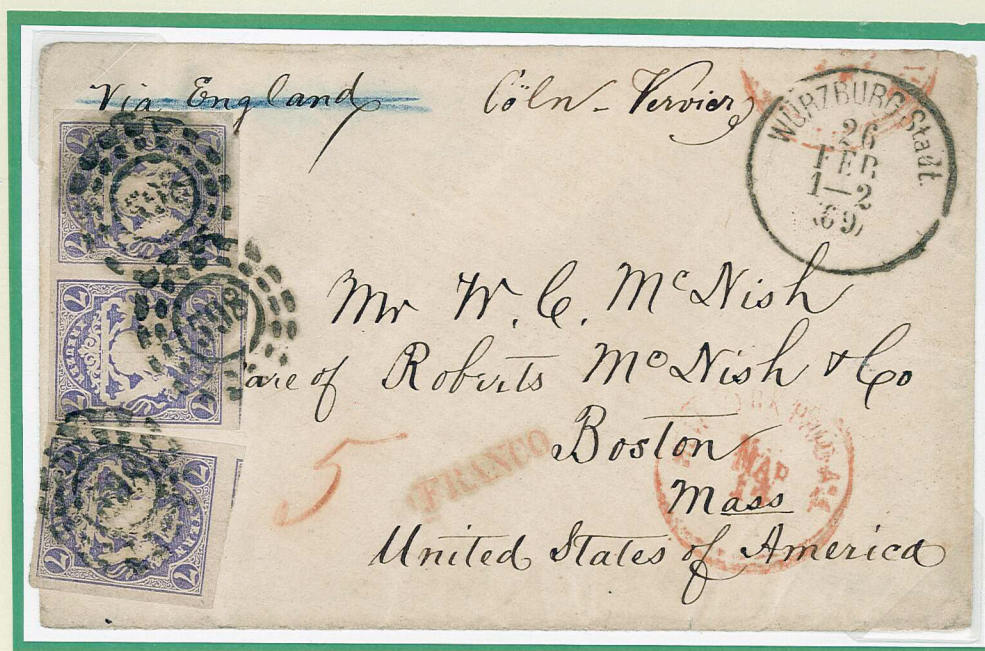 Via England Cöln - Vervier
WÜRZBURG Stadt.
26
FEB
1—2
(69)
7
7
598
7
7
7
KREUZER
7
7
7
Mr W. C. McNish
Care of Roberts McNish & Co
Boston
Mass
United States of America
5
FRANCO
MAR